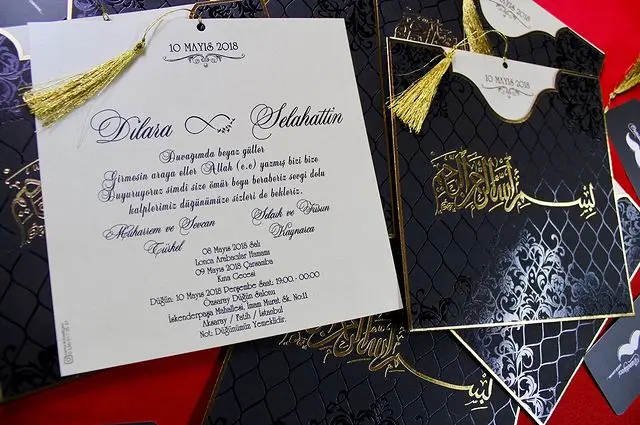 10 MAYIS 2018
Dilara Selahattin
Duvağımda beyaz güller
Girmesin araya eller Allah (c.c) yazmış bizi bize
Duyuruyoruz şimdi size ömür boyu beraberiz sevgi dolu
kalplerimiz düğünümüze sizleri de bekleriz.
Muharrem ve Sevcan
Türkel
Sıdık ve Füsun
Kaynaıca
08 Mayıs 2018 Salı
Lonca Arabacılar Hamamı
09 Mayıs 2018 Çarşamba
Kına Gecesi
Düğün: 10 Mayıs 2018 Perşembe Saat: 19.00 - 00.00
Özsaray Düğün Salonu
İskenderpaşa Mahallesi, İmam Murat Sk. No:11
Aksaray / Fatih / İstanbul
Not: Düğünümüz Yemeklidir.
10 MAYIS 2018
بسم الله الرحمن الرحيم
10 MAYIS 2018
بسم الله الرحمن الرحيم